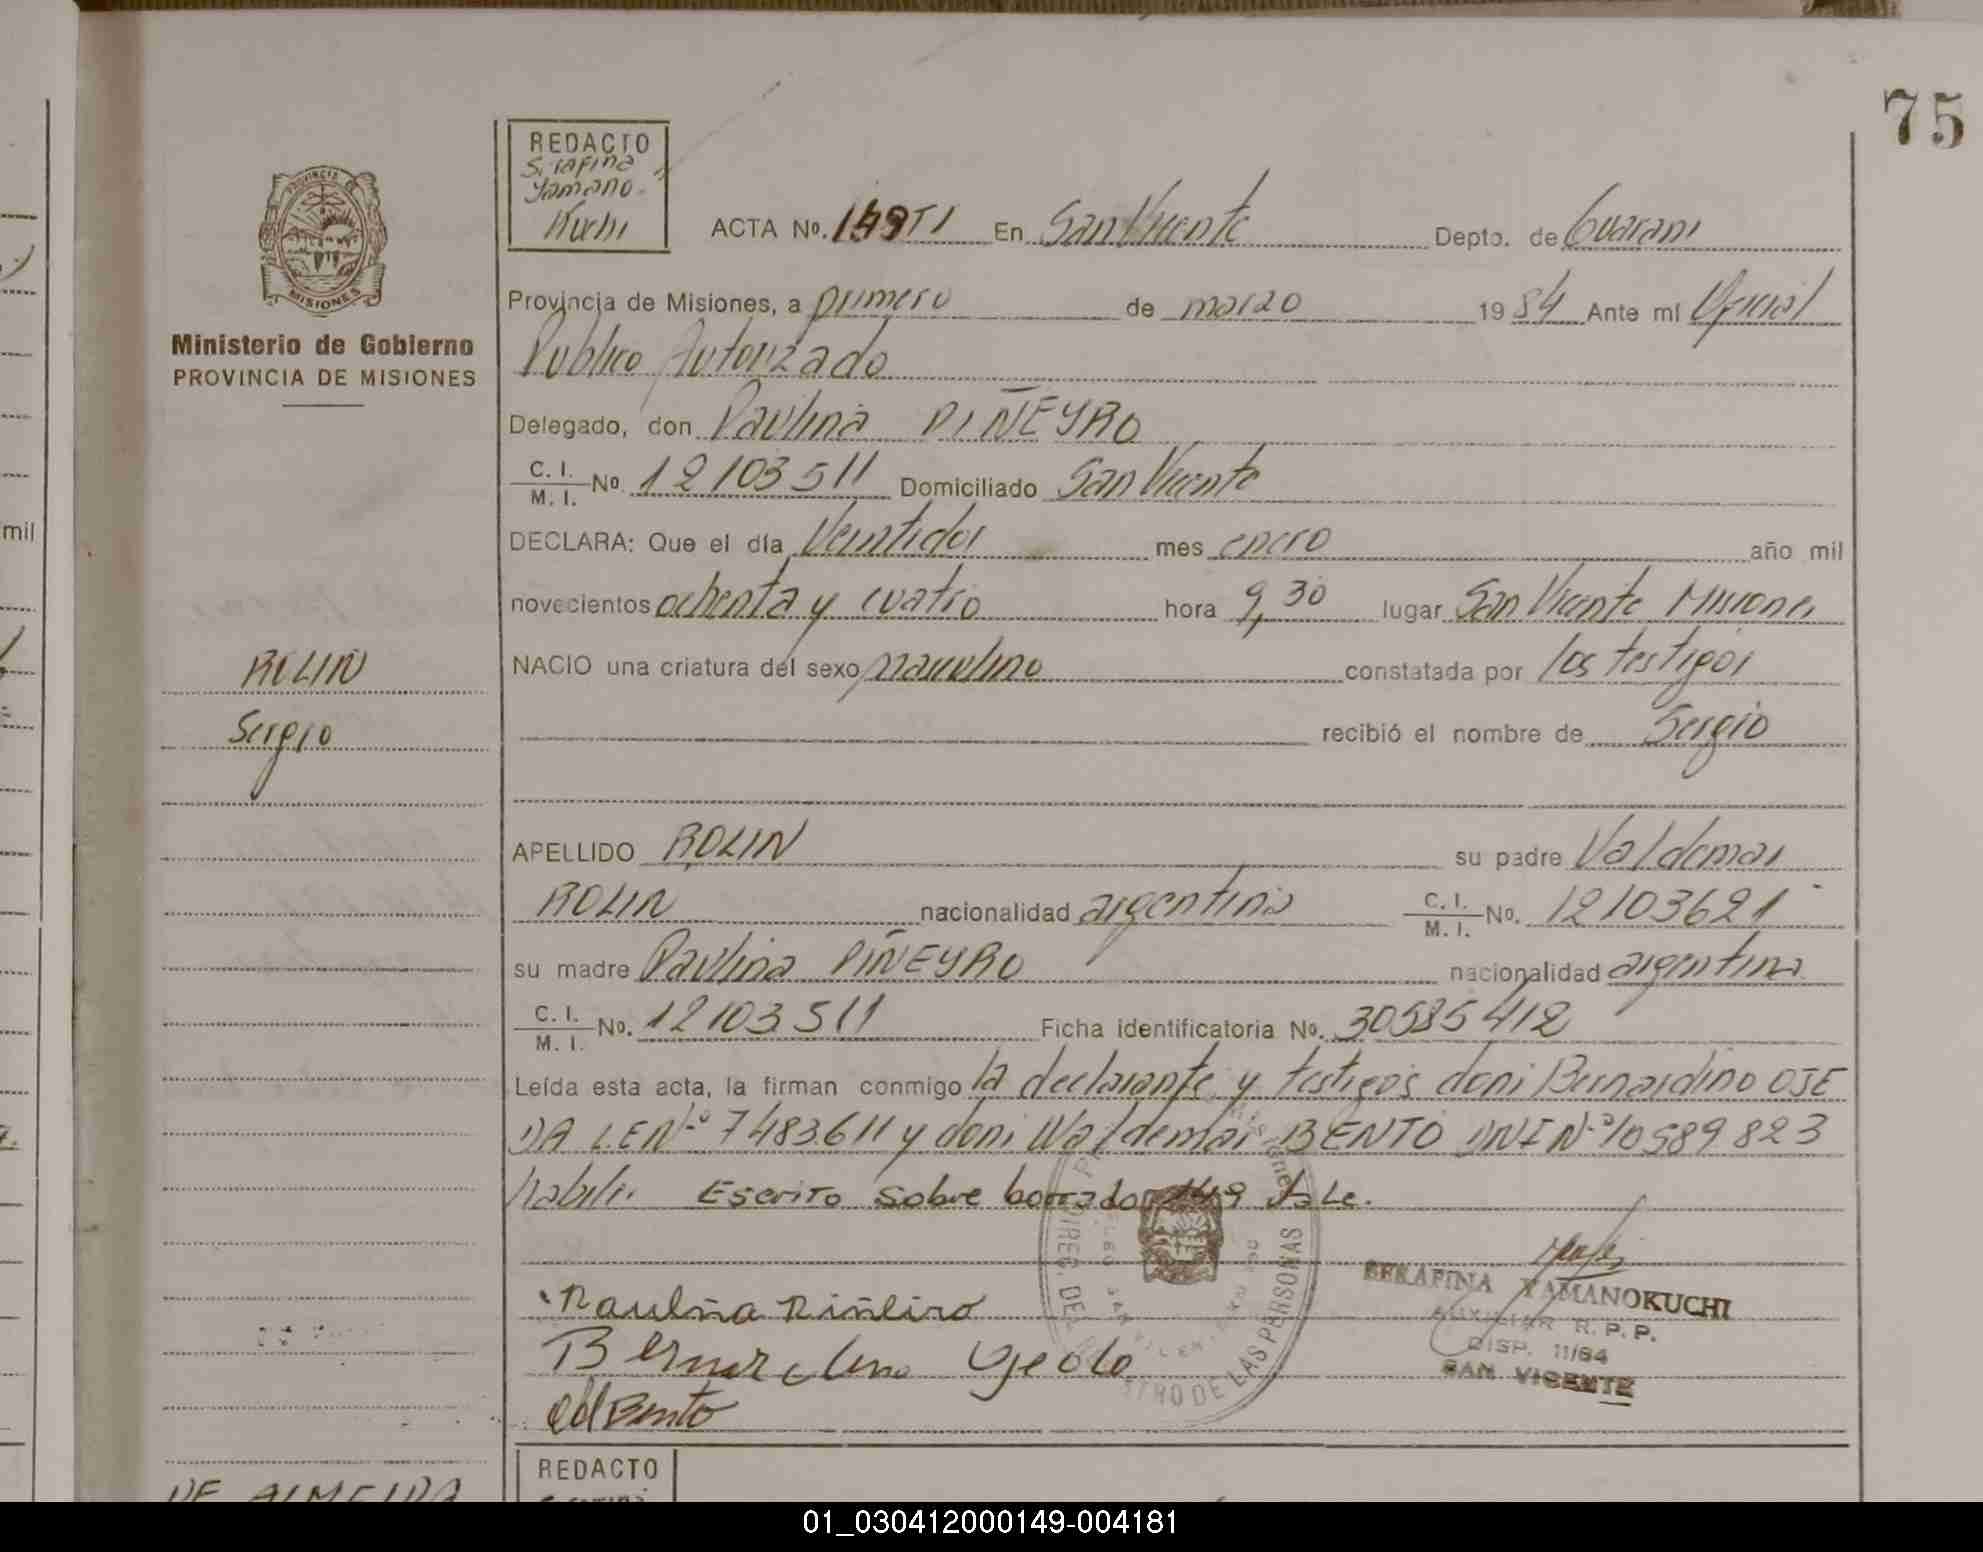 75
REDACTO
Serafina
Yamano
Kuchi
PROVINCIA DE
MISIONES
Ministerio de Gobierno
PROVINCIA DE MISIONES
ACTA No. 149 TI En San Vicente Depto. de Guarani
Provincia de Misiones, a primero de marzo 1984 Ante mi Oficial
Publico Autorizado
Delegado, don Paulina PIÑEYRO
C. I. / M. I. No 12103511 Domiciliado San Vicente
DECLARA: Que el día Veintidos mes enero año mil
novecientos ochenta y cuatro hora 9,30 lugar San Vicente Misiones
NACIO una criatura del sexo masculino constatada por los testigos
recibió el nombre de Sergio
ROLIN
Sergio
APELLIDO ROLIN su padre Valdemar
ROLIN nacionalidad argentina C. I. / M. I. No. 12103621
su madre Paulina PIÑEYRO nacionalidad argentina
C. I. / M. I. No. 12103511 Ficha identificatoria No. 30535412
Leída esta acta, la firman conmigo la declarante y testigos doni Bernardino OJE
DA LE Nº 7483611 y doni Waldemar BENTO DNI Nº 10589823
habiles Escrito sobre borrado 149 Vale.
Paulina Piñeiro
Bernardino Ojeda
Bento
DIREC. DEL REGISTRO DE LAS PERSONAS
SERAFINA YAMANOKUCHI
AUXILIAR R. P. P.
DISP. 11/84
SAN VICENTE
REDACTO
DE ALMEIDA
mil
01_030412000149-004181